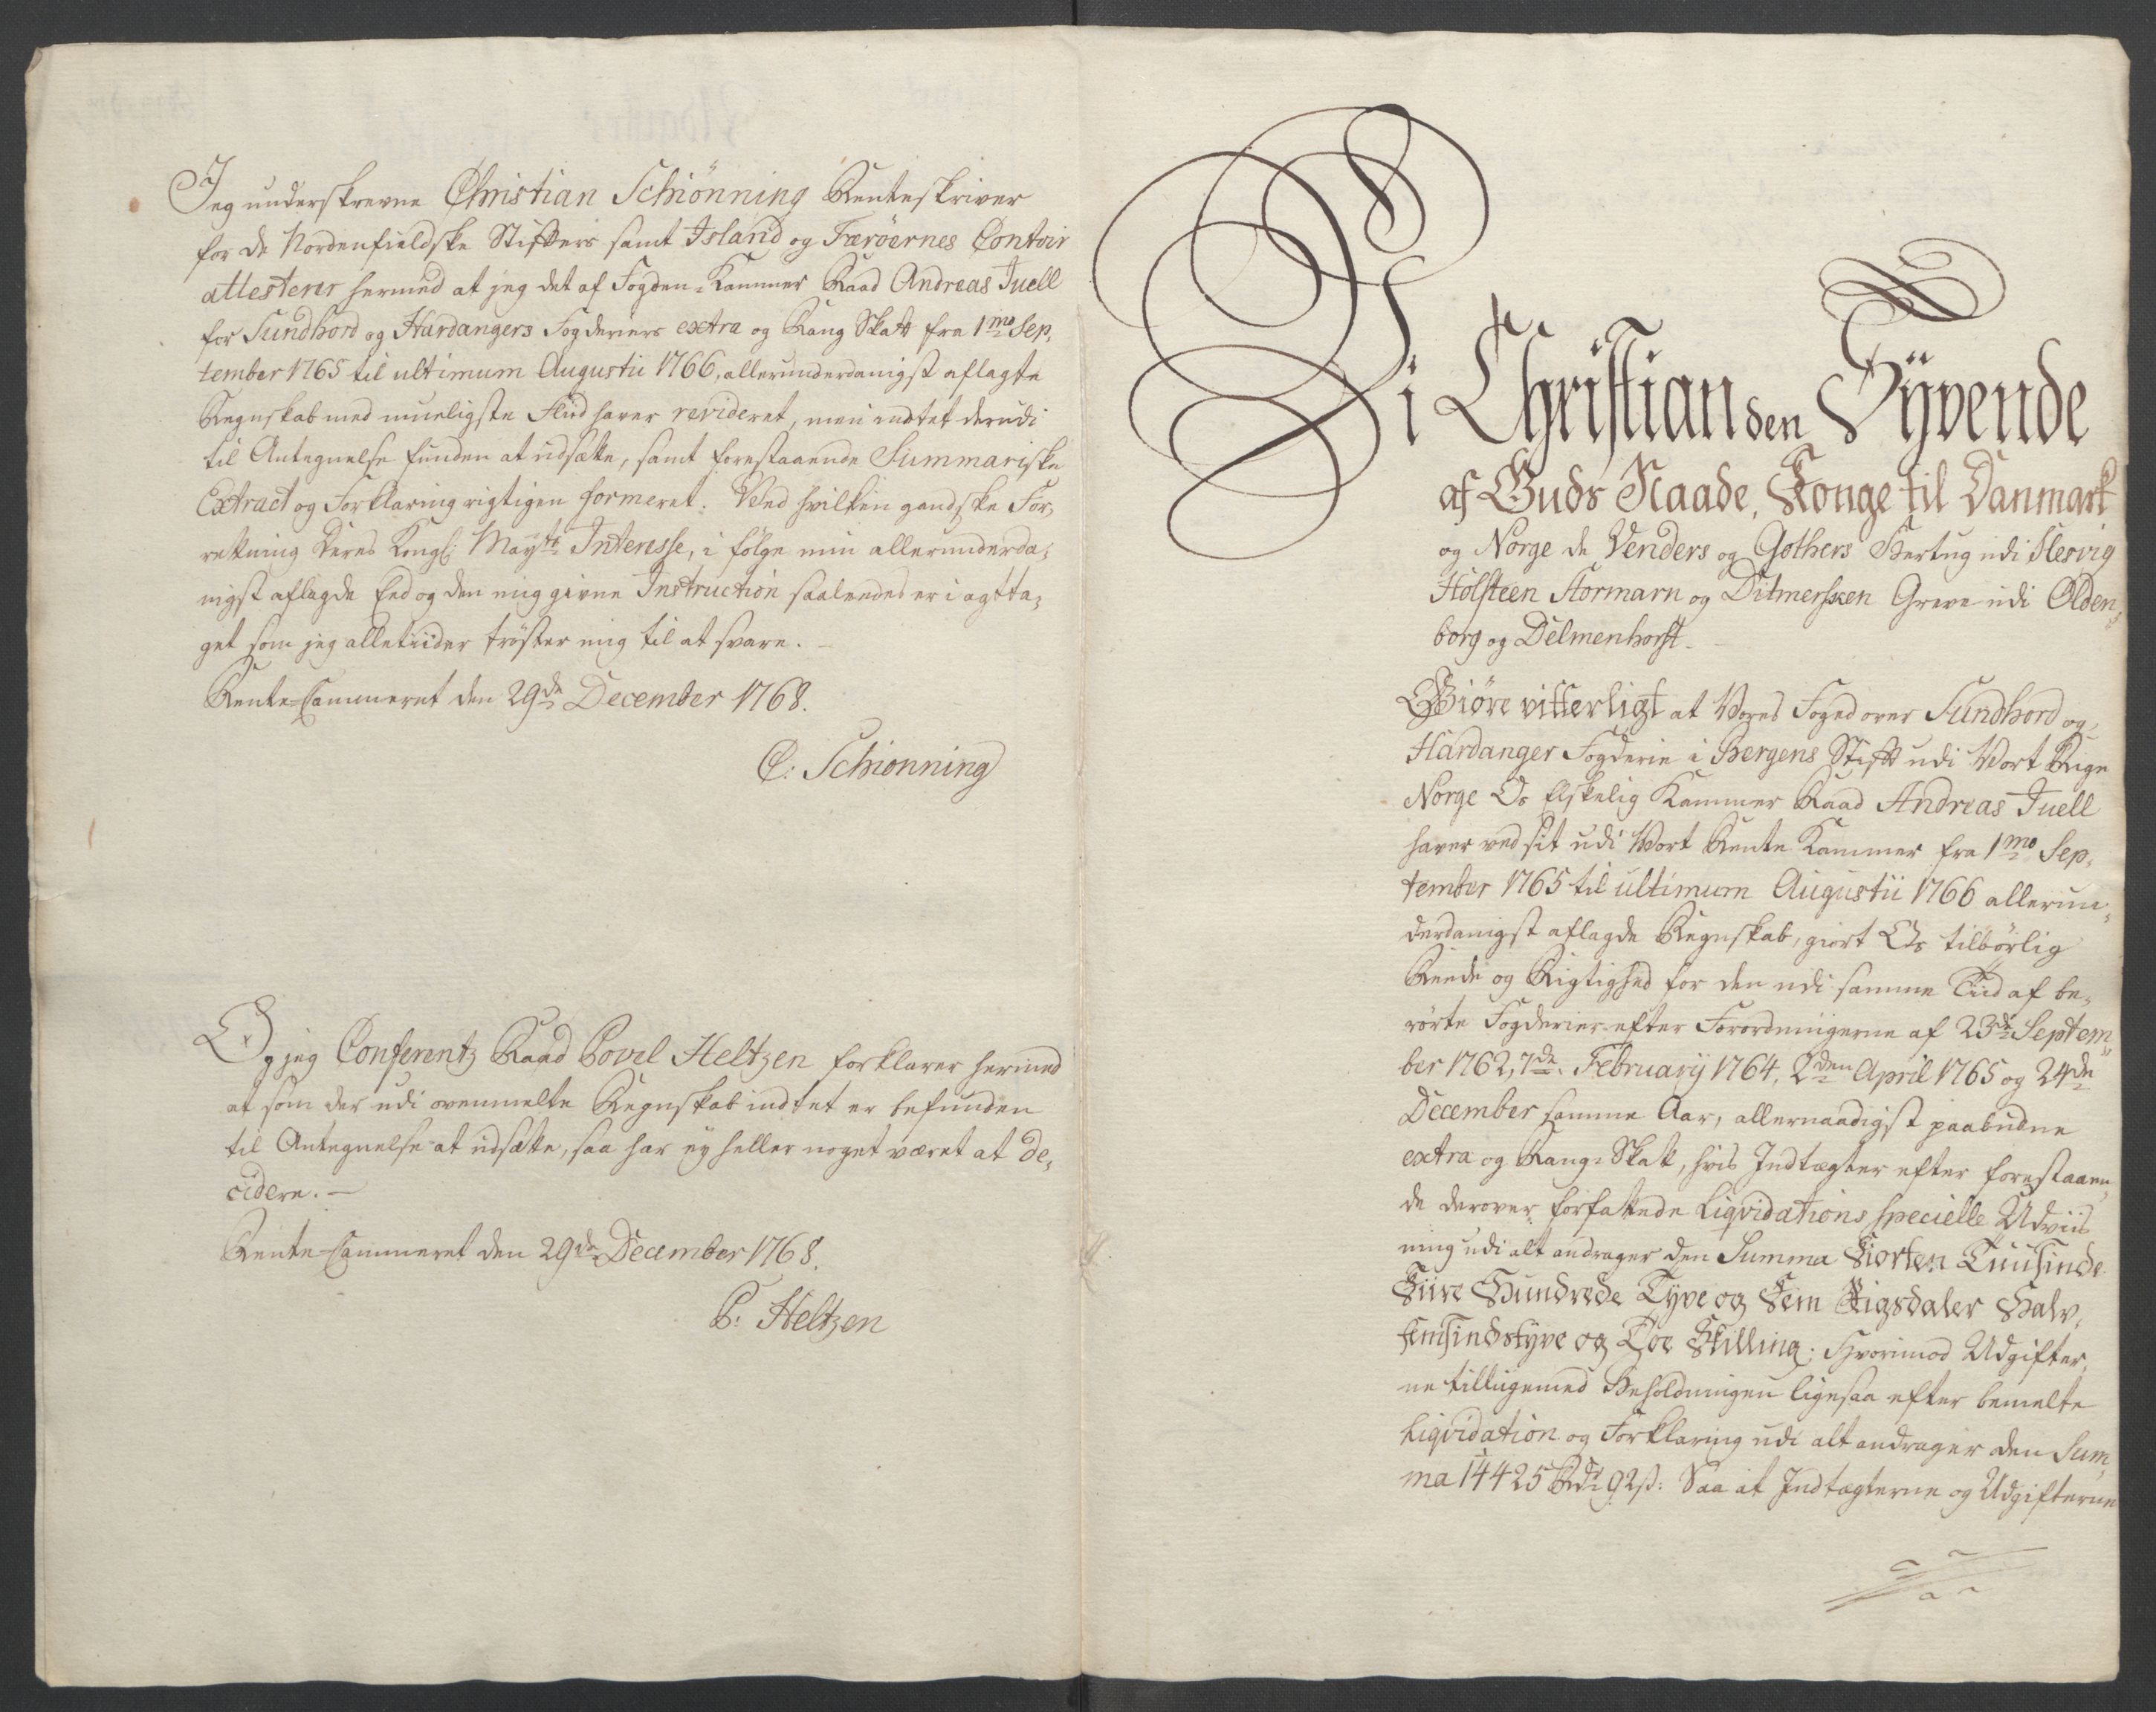 Jeg underskrevne Christian Schiönning Renteskriver
for de Nordenfieldske Stifters samt Island og Færöernes Contoir
attesterer hermed at jeg det af Fogden Kammer Raad Andreas Juell
for Sundhord og Hardangers Fogderiers extra og Rang Skatt fra 1mo Sep,
tember 1765 til ultimum Augustii 1766, allerunderdanigst aflagte
Regnskab med mueligste Fliid haver revideret, men indtet derudi
til Antegnelse funden at udsætte, samt forestaaende Summariske
Extract og Forklaring rigtigen formeret. Ved hvilken gandske For,
retning Deres Kongl: Mayts Interesse, i følge min allerunderda,
nigst aflagde Eed og den mig givne Instruction saaledes er i agtta,
get som jeg alletiider trøster mig til at svare. –
Rente-Cammeret den 29de December 1768.
C: Schionning
Og jeg Conferentz Raad Povel Heltzen forklarer hermed
at som der udi ovenmelte Regnskab indtet er befunden
til Antegnelse at udsætte, saa har ey heller noget været at de,
cidere. –
Rente-Cammeret den 29de December 1768.
P: Heltzen
Vi Christian den Syvende
af Guds Naade, Konge til Danmark
og Norge de Venders og Gothers Hertug udi Slesvig
Holsteen Stormarn og Ditmersken Greve udi Olden,
borg og Delmenhorst –
Giöre vitterligt at Vores Foged over Sundhord og
Hardanger Fogderie i Bergens Stift udi Vort Rige
Norge Os Elskelig Kammer Raad Andreas Juell
haver ved sit udi Vort Rente Kammer fra 1mo Sep,
tember 1765 til ultimum Augustii 1766 allerun,
derdanigst aflagde Regnskab, giort Os tilbörlig
Reede og Rigtighed for den udi samme Tiid af be,
rörte Fogderier efter Forordningerne af 23de Septem,
ber 1762, 7de February 1764, 2den April 1765 og 24de
December samme Aar, allernaadigst paabudne
extra og Rang-Skatt, hvis Indtægter efter forestaaen,
de derover forfattede Liqvidations specielle Udviis
ning udi alt andrager den Summa Fiorten Tuusinde
Fiire Hundrede Tyve og Fem Rigsdaler Halv,
femsindstyve og Toe Skilling; Hvorimod Udgifter,
ne tilligemed Beholdningen ligesaa efter bemelte
Liqvidation og Forklaring udi alt andrager den Sum,
ma 14425 Rdr 92 s: Saa at Indtægterne og Udgifterne